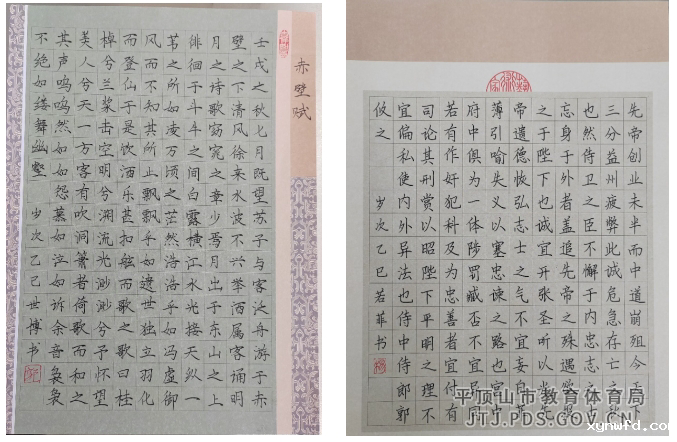 赤壁赋
壬戌之秋七月既望苏子与客泛舟游于赤
壁之下清风徐来水波不兴举酒属客诵明
月之诗歌窈窕之章少焉月出于东山之上
徘徊于斗牛之间白露横江水光接天纵一
苇之所如凌万顷之茫然浩浩乎如冯虚御
风而不知其所止飘飘乎如遗世独立羽化
而登仙于是饮酒乐甚扣舷而歌之歌曰桂
棹兮兰桨击空明兮溯流光渺渺兮予怀望
美人兮天一方客有吹洞箫者倚歌而和之
其声呜呜然如怨如慕如泣如诉余音袅袅
不绝如缕舞幽壑 岁次乙巳世博书
先帝创业未半而中道崩殂今天下
三分益州疲弊此诚危急存亡之秋
也然侍卫之臣不懈于内忠志之士
忘身于外者盖追先帝之殊遇欲报
之于陛下也诚宜开张圣听以光先
帝遗德恢弘志士之气不宜妄自菲
薄引喻失义以塞忠谏之路也宫中
府中俱为一体陟罚臧否不宜异同
若有作奸犯科及为忠善者宜付有
司论其刑赏以昭陛下平明之理不
宜偏私使内外异法也侍中侍郎郭
攸之 岁次乙巳若菲书
平顶山市教育体育局
JTJ.PDS.GOV.CN
xynwfd.com